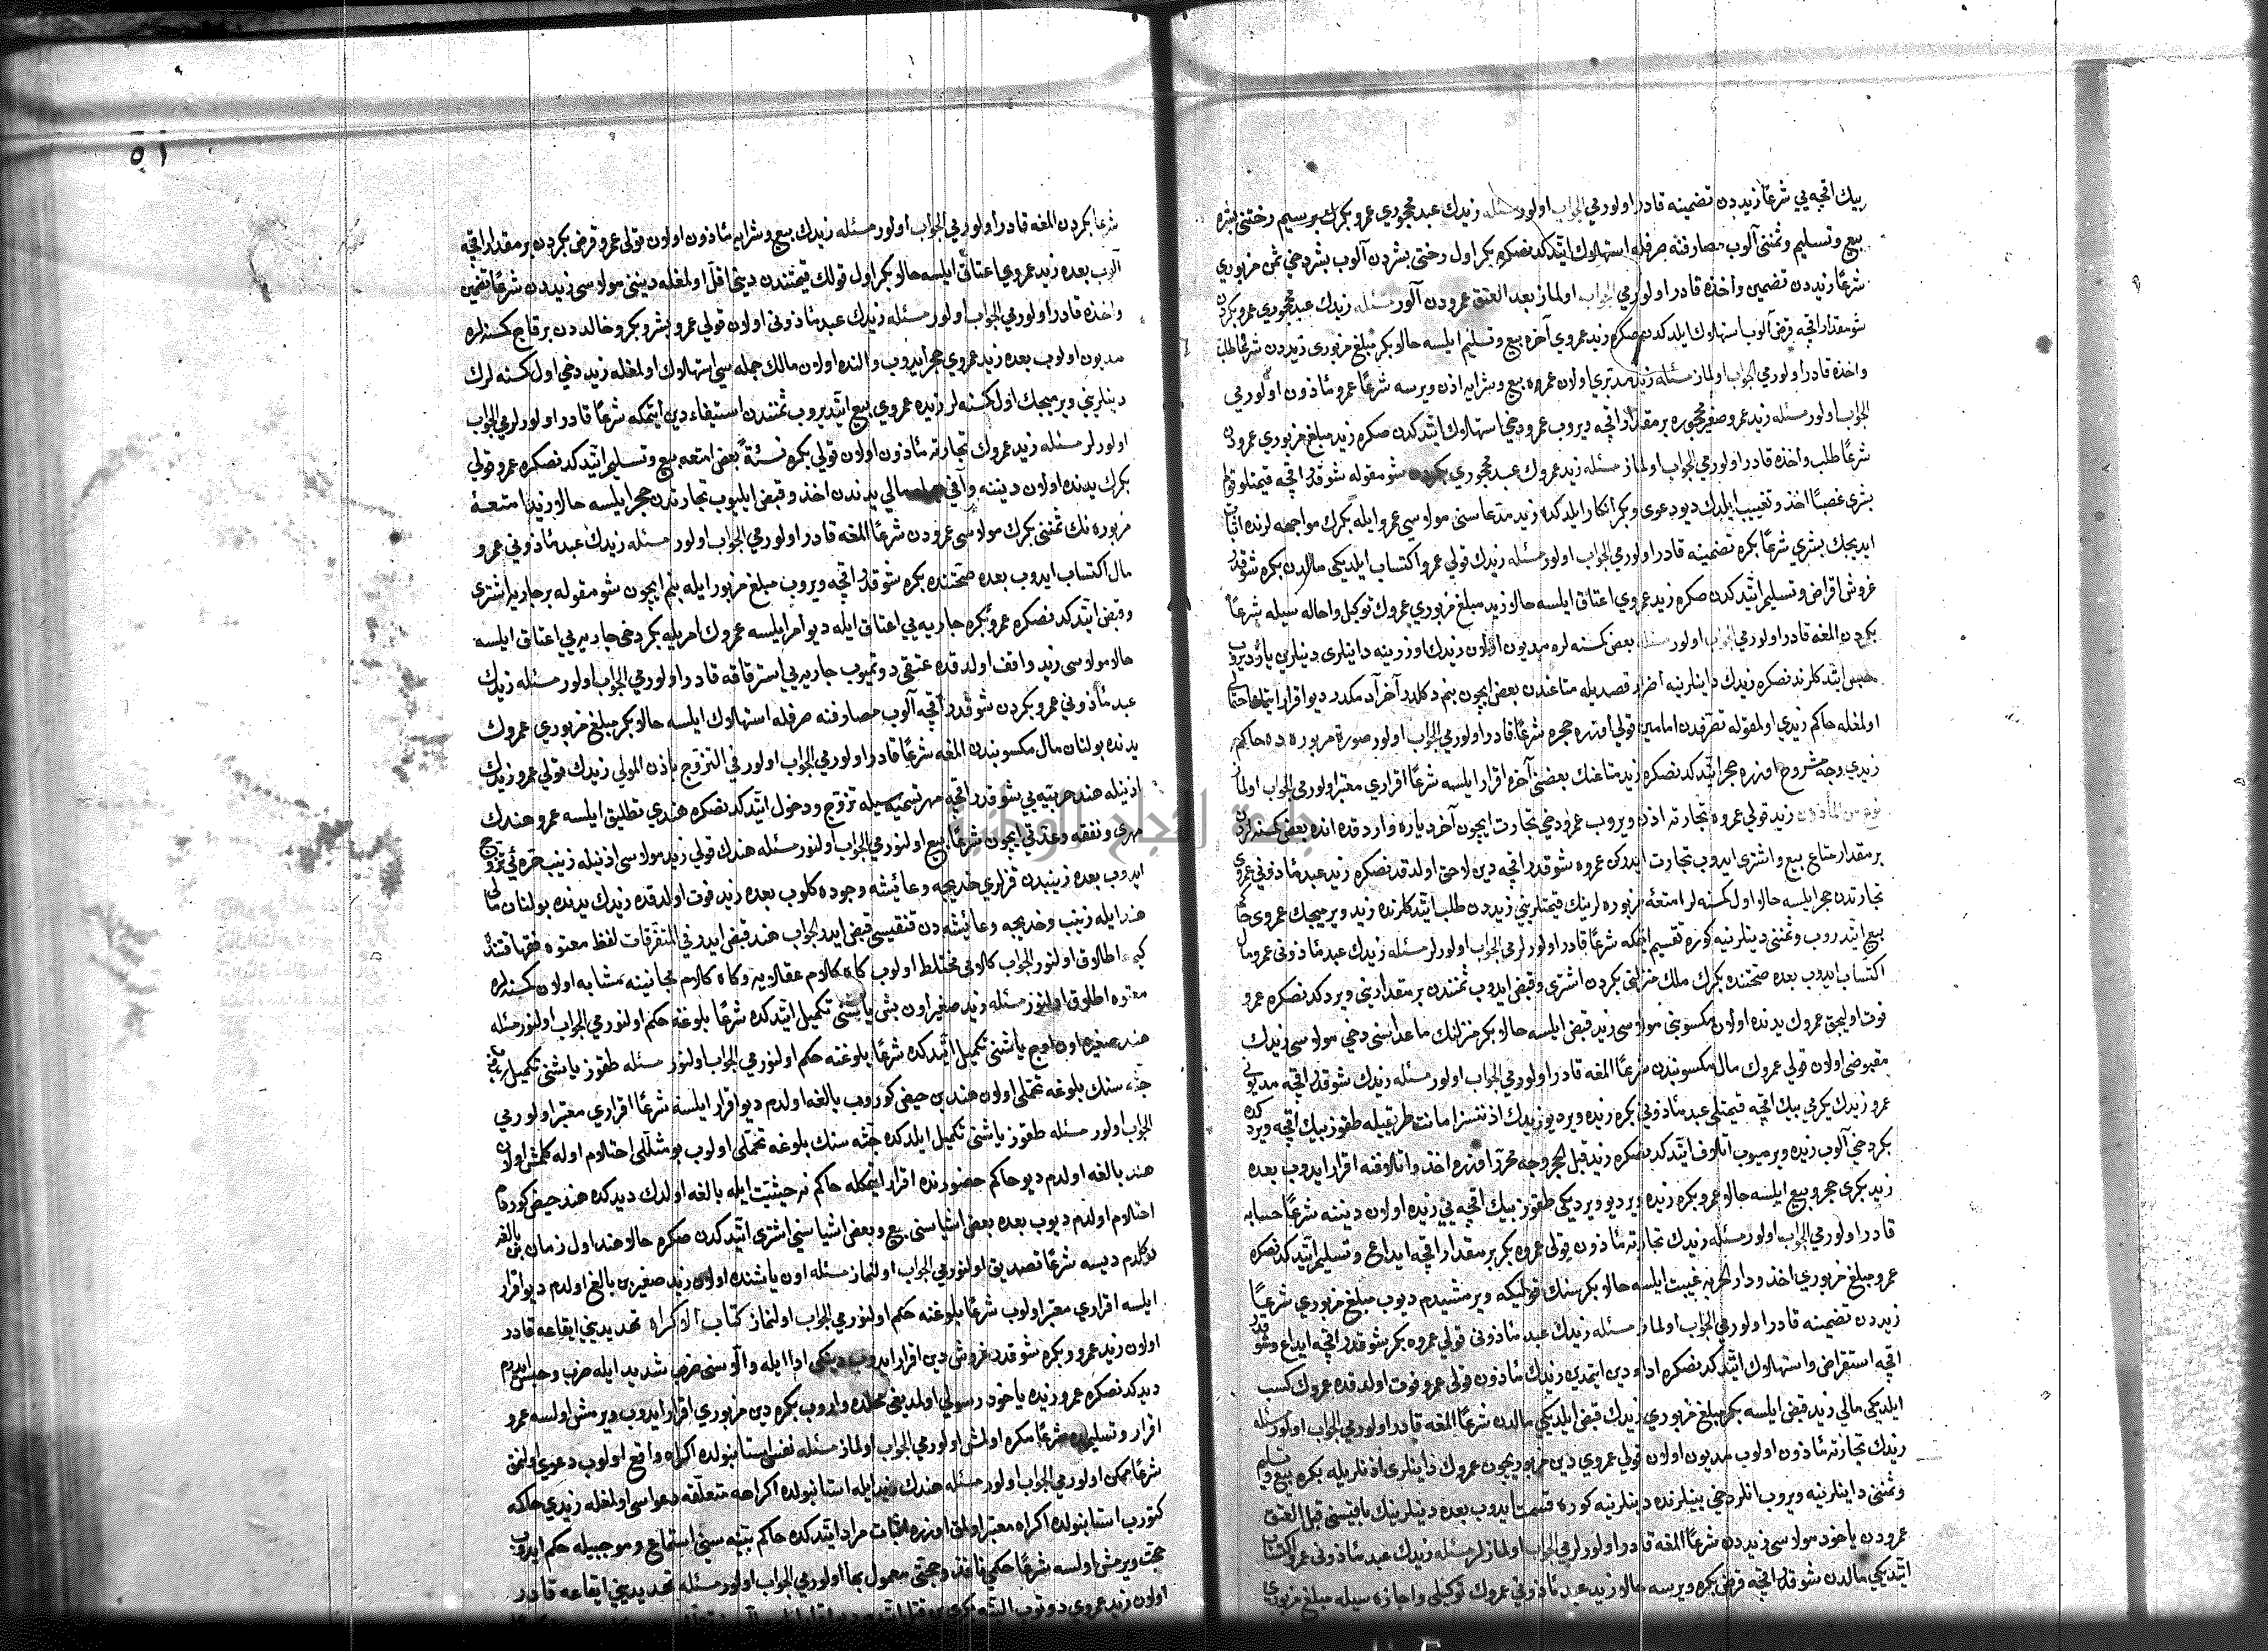 بيك اقچه يي شرعاً زيددن تضمينه قادر اولورمي الجواب اولور مسئله زيدك عبد محجوري عمرو بكرك بر سيم رختنى بشره
بيع وتسليم وثمننى آلوب مصارفنه صرفله استهلاك ايتدكدنصكره بكر اول رختى بشردن آلوب بشر دخي ثمن مزبوري
شرعاً زيددن تضمين واخذه قادر اولورمي الجواب اولماز بعد العتق عمرودن آلور مسئله زيدك عبد محجوري عمرو بكردن
شو مقدار اقچه قرض آلوب استهلاك ايلدكدن صكره زيد عمروي آخره بيع وتسليم ايلسه حالا بكر مبلغ مزبورى زيددن شرعا طلب
واخذه قادر اولورمي الجواب اولماز مسئله زيد مدبري اولان عمروه بيع وشرايه اذن ويرسه شرعاً عمرو مأذون اولورمي
الجواب اولور مسئله زيد عمرو صغير محجوره بر مقدار اقچه ويروب عمرو دخي استهلاك ايتدكدن صكره زيد مبلغ مزبوري عمرودن
شرعاً طلب واخذه قادر اولورمي الجواب اولماز مسئله زيد عمروك عبد محجوري بكره شو مقوله شو قدر اقچه قيمتلو قولم
بشرى غصباً اخذ وتغييب ايلدك ديو دعوى وبكر انكار ايلدكده زيد مدعاسنى مولاسى عمرو ايله بكرك مواجهه لرنده اثبات
ايديجك بشري شرعاً بكره تضمينه قادر اولورمي الجواب اولور مسئله زيدك قولي عمرو اكتساب ايلديكى مالدن بكره شو قدر
غروش اقراض وتسليم ايتدكدن صكره زيد عمروي اعتاق ايلسه حالا زيد مبلغ مزبوري عمروك توكيل واحاله سيله شرعاً
بكردن المغه قادر اولورمي الجواب اولور مسئله بعض كسنه لره مديون اولان زيدك اوزرينه داينلرى دينلرين يازديروب
حبس ايتدكلرندنصكره زيدك داينلرينه اضرار قصديله متاعندن بعض ايچون بنم دكلدر آخر آدمكدر ديو اقرار ايتمك احتمالى
اولمغله حاكم زيدي اولمقوله تصرفدن امامين قولي اوزره حجره شرعاً قادر اولورمي الجواب اولور صورة مزبوره ده حاكم
زيدي وجه مشروح اوزره حجر ايتدكدنصكره زيد متاعنك بعضنى آخره اقرار ايلسه شرعاً اقراري معتبر اولورمي الجواب اولماز
نوع من المأذون زيد قولي عمروه تجارته اذن ويروب عمرو دخي تجارت ايچون آخر دياره واردقده انده بعض كسنه لردن
بر مقدار متاع بيع واشترى ايدوب تجارت ايدركن عمروه شو قدر اقچه دين لاحق اولدقدنصكره زيد عبد مأذوني عمروى
تجارتدن حجر ايلسه حالا اول كسنه لر امتعه مزبوره لرينك قيمتلريني زيددن طلب ايتدكلرنده زيد ويرميجك عمروى حاكمه
بيع ايتديروب وثمننى دينلرينه كوره تقسيم ايتمكه شرعاً قادر اولورلرمي الجواب اولورلر مسئله زيدك عبد مأذونى عمرو مال
اكتساب ايدوب بعده صحتنده بكرك ملك منزلنى بكردن اشترى وقبض ايدوب ثمنندن بر مقداريني ويردكدنصكره عمرو
فوت اوليجق عمروك يدنده اولان مكسوبنى مولاسى زيد قبض ايلسه حالا بكر منزلنك ماعداسنى دخي مولاسى زيدك
مقبوضى اولان قولي عمروك مال مكسوبندن شرعاً المغه قادر اولورمي الجواب اولور مسئله زيدك شو قدر اقچه مديونى
عمرو زيدك يكرمي بيك اقچه قيمتلي عبد مأذوني بكره زيده ويردیو زيدك اذننسز امانت طريقيله طقوز بيك اقچه ويردكده
بكر دخي آلوب زيده ويرميوب اتلاف ايتدكدنصكره زيد قبل الحجر وجه محرر اوزره اخذ واتلافنه اقرار ايدوب بعده
زيد بكرى حجر وبيع ايلسه حالا عمرو بكره زيده ويرديو ويرديكى طقوز بيك اقچه يي زيده اولان ديننه شرعاً حسابه
قادر اولورمي الجواب اولور مسئله زيدك تجارته مأذون قولى عمروه بكر بر مقدار اقچه ايداع وتسليم ايتدكدنصكره
عمرو مبلغ مزبوري اخذ ودار الحربه غيبت ايلسه حالا بكر سنك قولكه ويرمشيدم ديوب مبلغ مزبوري شرعاً
زيددن تضمينه قادر اولورمي الجواب اولماز مسئله زيدك عبد مأذونى قولي عمروه بكر شو قدر اقچه ايداع وشو قدر
اقچه استقراض واستهلاك ايتدكدنصكره اداء دين ايتمدين زيدك مأذون قولى عمرو فوت اولدقده عمروك كسب
ايلديكى مالي زيد قبض ايلسه بكر مبلغ مزبوري زيدك قبض ايلديكي مالدن شرعاً المغه قادر اولورمي الجواب اولور مسئله
زيدك تجارته مأذون اولوب مديون اولان قولي عمروي دين مزبور ايچون عمروك داينلرى اذنلريله بكره بيع وتسليم
وثمننى داينلرينه ويروب انلر دخي بينلرنده دينلرينه كوره قسمت ايدوب بعده دينلرينك باقيسنى قبل العتق
عمرودن ياخود مولاسى زيددن شرعاً المغه قادر اولورلرمي الجواب اولمازلر مسئله زيدك عبد مأذونى عمرو اكتساب
ايتديكي مالدن شو قدر اقچه قرض بكره ويرسه حالا زيد عبد مأذوني عمروك توكيلى واجازه سيله مبلغ مزبورى
شرعا بكردن المغه قادر اولورمي الجواب اولور مسئله زيدك بيع وشرايه مأذون اولان قولى عمرو قرض بكردن بر مقدار اقچه
آلوب بعده زيد عمروي اعتاق ايلسه حالا بكر اول قولك قيمتندن دينى اقل اولمغله دينني مولاسى زيددن شرعاً تضمين
واخذه قادر اولورمي الجواب اولور مسئله زيدك عبد مأذونى اولان قولي عمرو بشر وبكر وخالددن برقاچ كسنه لره
مديون اولوب بعده زيد عمروي حجر ايدوب والنده اولان مالك جمله سي استهلاك اولمغله زيد دخي اول كسنه لرك
دينلريني ويرميجك اول كسنه لر زيده عمروي بيع ايتديروب ثمنندن استيفاء دين ايتمكه شرعاً قادر اولورلرمي الجواب
اولورلر مسئله زيد عمروك تجارته مأذون اولان قولي بكره نسئةً بعض امتعه بيع وتسليم ايتدكدنصكره عمرو قولي
بكرك يدنده اولان ديننه وافي مالي يدندن اخذ وقبض ايليوب تجارتدن حجر ايلسه حالا زيد امتعهٔ
مزبوره نك ثمننى بكرك مولاسى عمرودن شرعاً المغه قادر اولورمي الجواب اولور مسئله زيدك عبد مأذوني عمرو
مال اكتساب ايدوب بعده صحتنده بكره شو قدر اقچه ويروب مبلغ مزبور ايله بنم ايچون شو مقوله بر جاريه اشترى
وقبض ايتدكدنصكره عمرو بكره جاريه يي اعتاق ايله ديو امر ايلسه عمروك امريله بكر دخى جاريه يي اعتاق ايلسه
حالا مولاسى زيد واقف اولدقده عتقى دوتميوب جاريه يي استرقاقه قادر اولورمي الجواب اولور مسئله زيدك
عبد مأذوني عمرو بكردن شو قدر اقچه آلوب مصارفنه صرفله استهلاك ايلسه حالا بكر مبلغ مزبوري عمروك
يدنده بولنان مال مكسوبندن المغه شرعاً قادر اولورمي الجواب اولور في التزوج باذن المولى زيدك قولي عمرو زيدك
اذنيله هند حريتيه يي شو قدر اقچه مهر تسميه سيله تزوج ودخول ايتدكدنصكره هندي تطليق ايلسه عمرو هندك
مهرى ونفقه وعدتي ايچون شرعاً بيع اولنورمي الجواب اولنور مسئله هندك قولي زيد مولاسى اذنيله زينب حره يي تزوج
ايدوب بعده زينبدن قزلري خديجه وعائيشه وجوده كلوب بعده زيد فوت اولدقده زيدك يدنده بولنان مالى
هند ايله زينب وخديجه وعائيشه دن تنقيسى قبض ايدر الجواب هند قبض ايدر في المتفرقات لفظ معتوه فقها قتنده
كيمه اطلاق اولنور الجواب كلامى مختلط اولوب كاه كلام عقلايه وكاه كلام مجانينه مشابه اولان كسنه لره
معتوه اطلاق اولنور مسئله زيد صغير اون بش ياشنى تكميل ايتدكده شرعاً بلوغنه حكم اولنورمي الجواب اولنور مسئله
هند صغيره اون اوچ ياشنى تكميل ايتدكده شرعاً بلوغنه حكم اولنورمي الجواب اولنور مسئله طقوز ياشنى تكميل
جثه سنك بلوغه تحملى اولان هند بن حيض كوروب بالغه اولدم ديو اقرار ايلسه شرعاً اقراري معتبر اولورمي
الجواب اولور مسئله طقوز ياشنى تكميل ايلدكده جثه سنك بلوغه تحملى اولوب بو مثللى احتلام اوله كلمش اولان
هند بالغه اولدم ديو حاكم حضورنده اقرار ايتمكله حاكم نه حيثيت ايله بالغه اولدك ديدكده هند حيض كوردم
احتلام اولدم ديوب بعده بعض اشياسنى بيع وبعض اشياسنى اشترى ايتدكدن صكره حالا هند اول زمان بن بالغه
دكلدم ديسه شرعاً تصديق اولنورمي الجواب اولنماز مسئله اون ياشنده اولان زيد صغير بن بالغ اولدم ديو اقرار
ايلسه اقراري معتبر اولوب شرعاً بلوغنه حكم اولنورمي الجواب اولنماز كتاب الاكراه تهديديني ايقاعه قادر
اولان زيد عمرو بكره شو قدر غروش دين اقرار ايدوب ادا ايله والا سنى ضرب شديد ايله ضرب وحبس ايدرم
ديدكدنصكره عمرو زيده ياخود رسولي اولديغى محلده واروب بكره دين مزبوري اقرار ايدوب ويرمش اولسه عمرو
اقرار وتسليمده شرعاً مكره اولمش اولورمي الجواب اولماز مسئله نفس استانبولده اكراه واقع اولوب دعوي اولنمق
شرعاً ممكن اولورمي الجواب اولور مسئله هندك زيد ايله استانبولده اكراهه متعلقه دعواسى اولمغله زيدي حاكمه
كتورب استانبولده اكراه معتبر اولمق اوزره اثبات مراد ايتدكده حاكم بينه سيني استماع وموجبيله حكم ايدوب
حجت ويرمش اولسه شرعاً حكمي نافذ وحجتى معمول بها اولورمي الجواب اولور مسئله تهديديني ايقاعه قادر
اولان زيد عمروي دوتوب
٥١
جامعة النجاح الوطنية